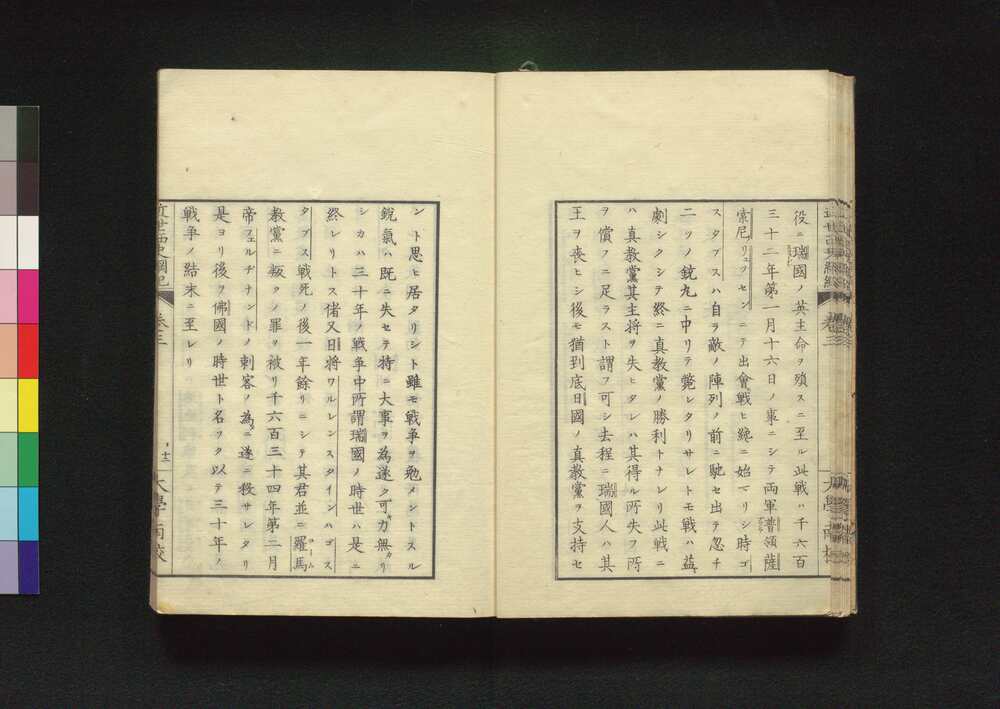 役ニ瑞國ノ英主命ヲ殞スニ至ル此戦ハ千六百
三十二年第一月十六日ノ事ニシテ両軍普領薩
索尼リュッセンニテ出會戦ヒ纔ニ始マリシ時ゴ
スタブスハ自ラ敵ノ陣列ノ前ニ馳セ出テ忽チ
二ツノ銃丸ニ中リテ斃レタリサレトモ戦ハ益
劇シクシテ終ニ真教黨ノ勝利トナレリ此戦ニ
ハ真教黨其主将ヲ失ヒタレハ其得ル所失フ所
ヲ償フニ足ラスト謂フ可シ去程ニ瑞國人ハ其
王ヲ喪ヒシ後モ猶到底日國ノ真教黨ヲ支持セ
ント思ヒ居タリシト雖モ戦争ヲ勉メントスル
鋭氣ハ既ニ失セテ特ニ大事ヲ為遂ク可力無リ
シカハ三十年ノ戦争中所謂瑞國ノ時世ハ是ニ
終レリトス偖又日将ワルレンスタインハゴス
タブス戦死ノ後一年餘リニシテ其君並ニ羅馬
教黨ニ叛クノ罪ヲ被リ千六百三十四年第二月
帝フェルヂナンドノ刺客ノ為ニ遂ニ殺サレタリ
是ヨリ後ヲ佛國ノ時世ト名ツク以テ三十年ノ
戦争ノ結末ニ至レリ
卷三
十二
大學南校